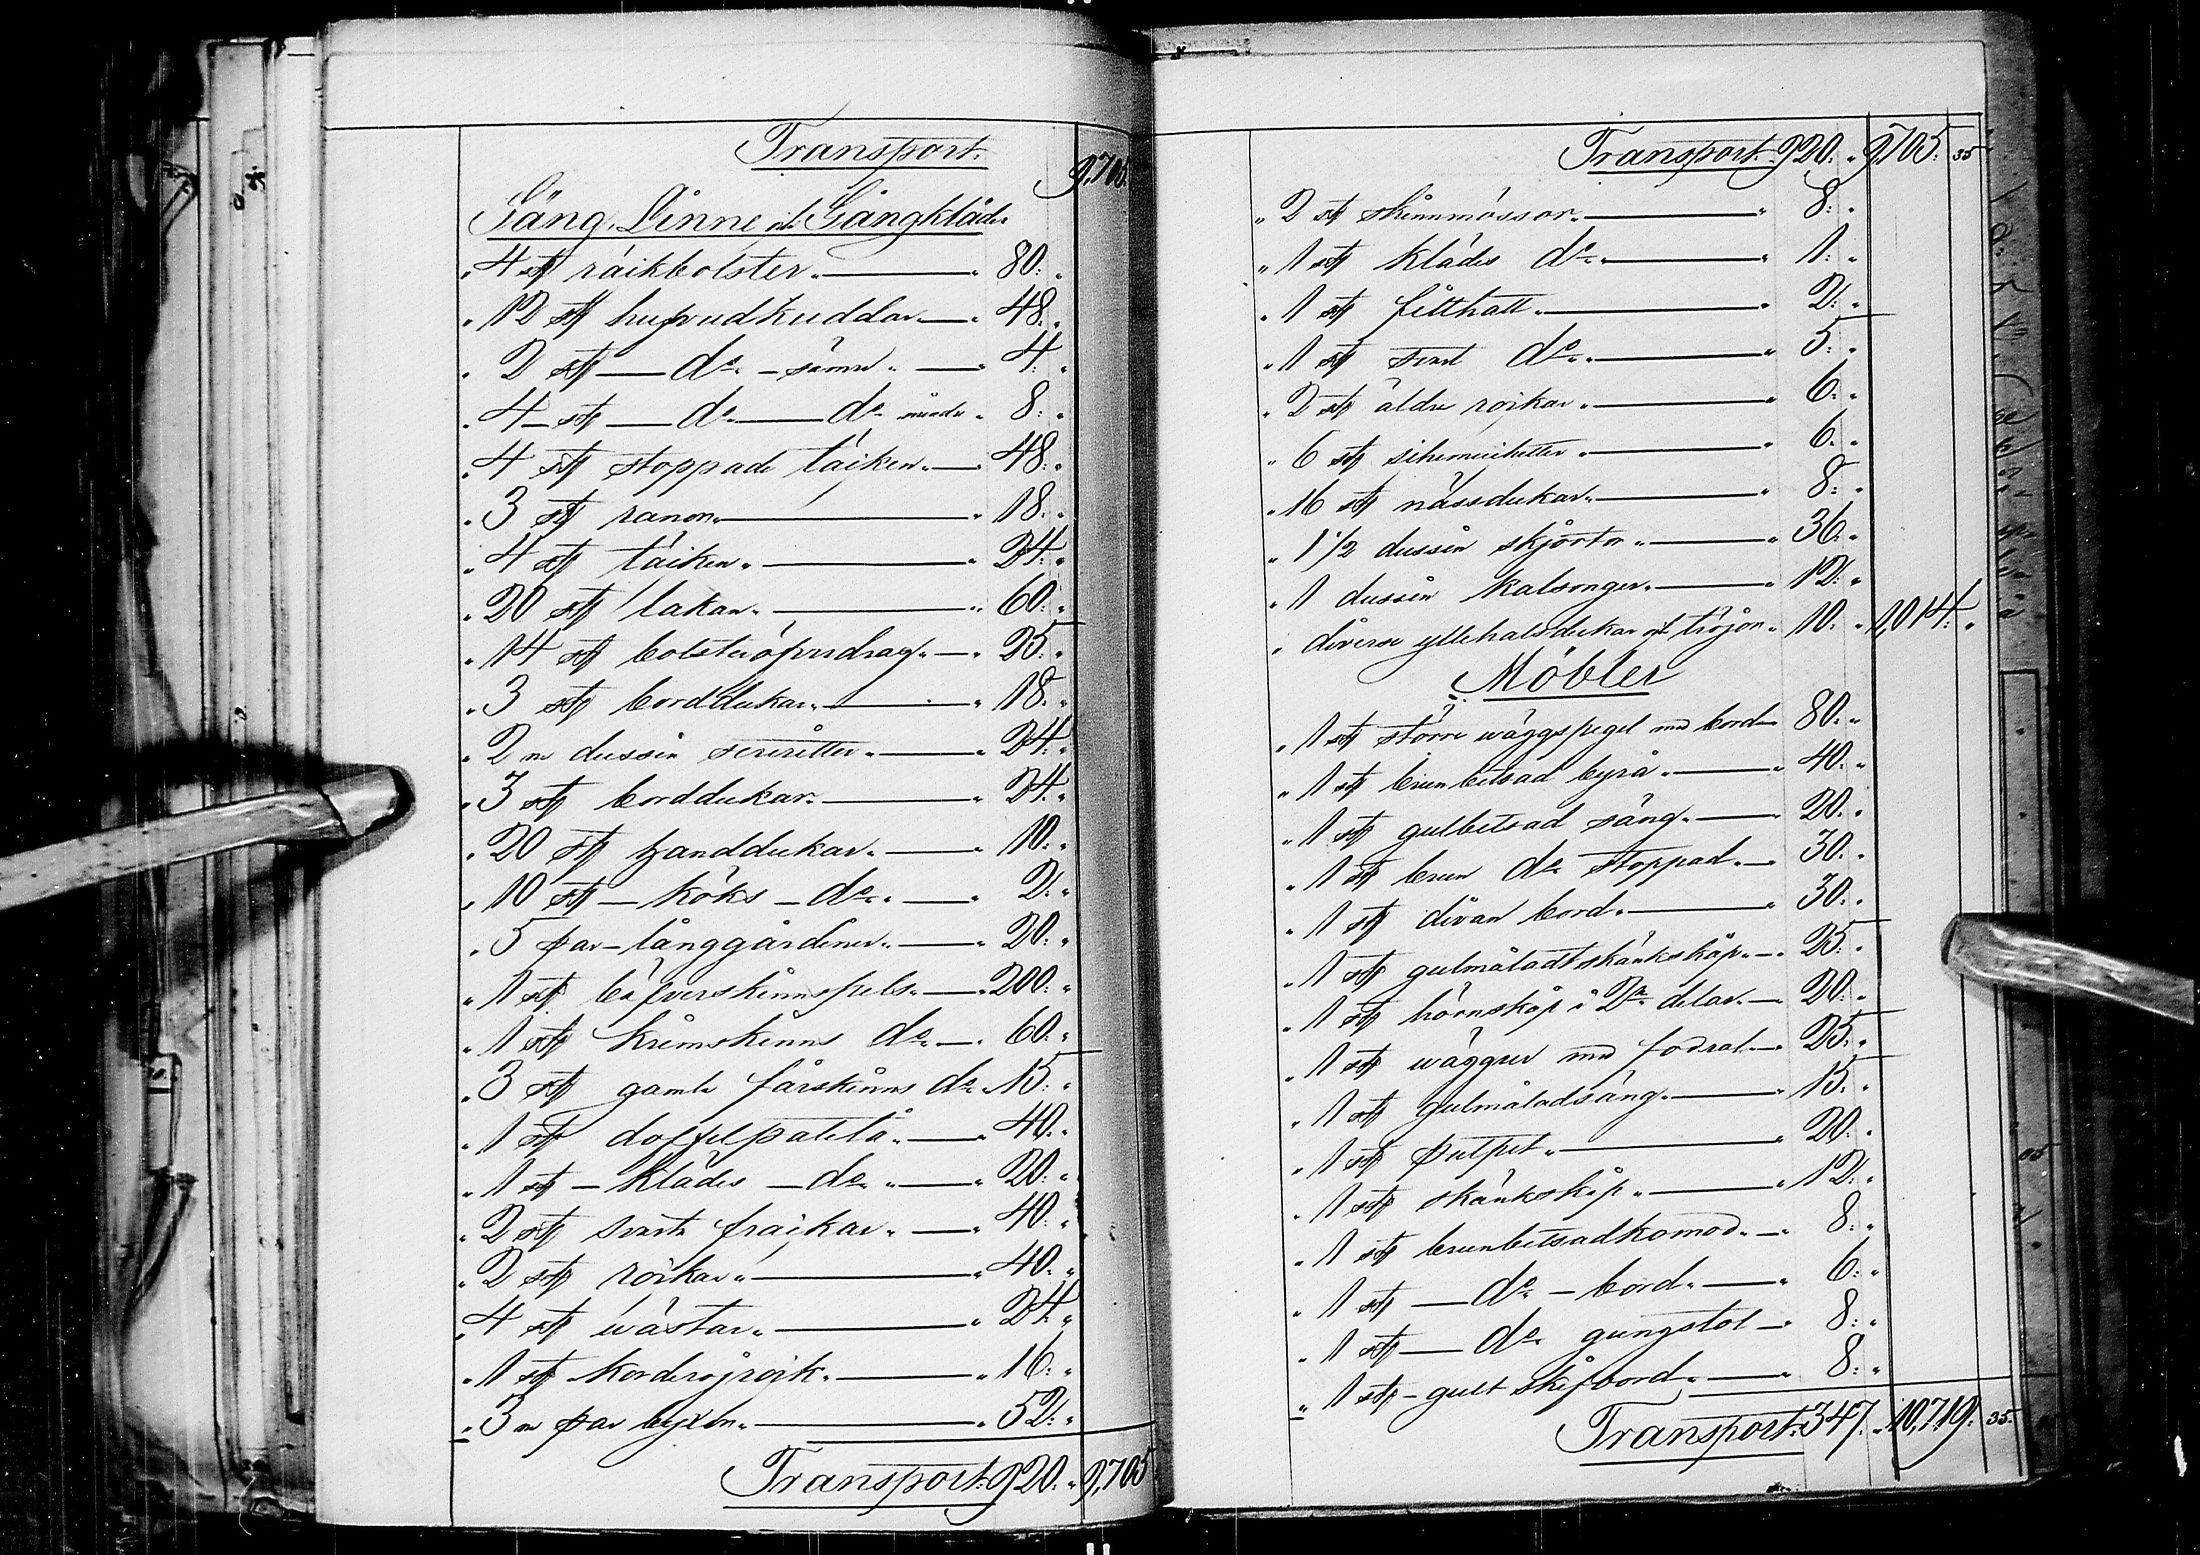 Transport. 9,705.
Säng, Linne och Gångkläder
" 4 st räikbolster. — " 80: "
" 12 st hufvudkuddar — " 48: "
" 2 st — do — sämre " — 4: "
" 4 st — do — do mindre " 8: "
" 4 st stoppade täcken — 48: "
" 3 st ranor. — " 18: "
" 4 st täcken " — " 24: "
" 20 st lakan " — " 60: "
" 14 st bolsteröfverdrag " — " 25: "
" 3 st borddukar — " 18: "
" 2 dussin servetter " — " 24: "
" 3 st borddukar — " 24: "
" 20 st handdukar " — " 10: "
" 10 st — köks — do " — 2: "
" 5 par långgardiner " — " 20: "
" 1 st bäfverskinnspels — " 200: "
" 1 st krimskinns do — " 60: "
" 3 st gamla fårskinns do " 15: "
" 1 st doffelpaletå " — " 40: "
" 1 st — klädes — do " — " 20: "
" 2 st svarta frackar " — " 40: "
" 2 st röckar " — " 40: "
" 4 st wästar " — " 24: "
" 1 st korderöjröck. — " 16: "
" 3 par byxor " — " 52: "
Transport. 920: " 9,705
Transport. 920: " 9,705: 35
" 2 st skinnmössor. — " 8: "
" 1 st klädes do " — " 1: "
" 1 st filthatt. — " 2: "
" 1 st do " — " 5: "
" 2 st äldre röckar " — " 6: "
" 6 st — " 6: "
" 16 st näsdukar. — " 8: "
" 1 1/2 dussin skjortor " — " 36: "
" 1 dussin kalsonger. — " 12: "
" diverse yllehalsdukar och tröjor " 10: " 1,014: "
Möbler
" 1 st större wäggspegel med bord 80: "
" 1 st brunbetsad byrå " — " 40: "
" 1 st gulbetsad säng " — " 20: "
" 1 st brun do stoppad. — " 30: "
" 1 st divan bord. — " 30: "
" 1 st gulmåladt skänkskåp. — 25: "
" 1 st hörnskåp i 2ne delar. — 20: "
" 1 st wäggur med fodral. — 25: "
" 1 st gulmålad säng. — 15: "
" 1 st pulpet " — " 20: "
" 1 st skänkskåp " — " 12: "
" 1 st brunbetsad komod. — 8: "
" 1 st — do — bord. — " 6: "
" 1 st — do gungstol — " 8: "
" 1 st — gult skifbord. — " 8: "
Transport. 347. " 10,719: 35.